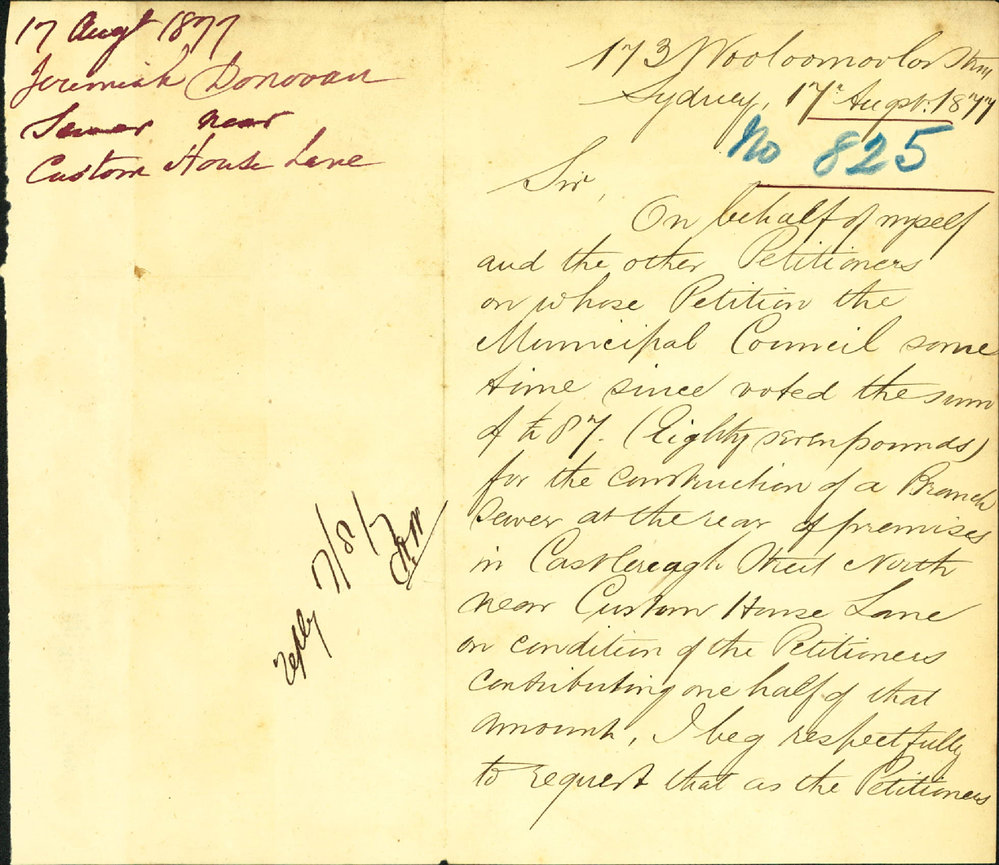 17 Augt 1877
Jeremiah Donovan
Sewer near
Custom House Lane
reply 17/8/77
173 Wooloomooloo Street
Sydney, 17th Augst. 1877
No 825
Sir,
On behalf of myself
and the other Petitioners
on whose Petition the
Municipal Council some
time since voted the sum
of £87. (Eighty seven pounds)
for the construction of a Branch
Sewer at the rear of premises
in Castlereagh Street North
near Custom House Lane
on condition of the Petitioners
contributing one half of that
amount, I beg respectfully
to request that as the Petitioners